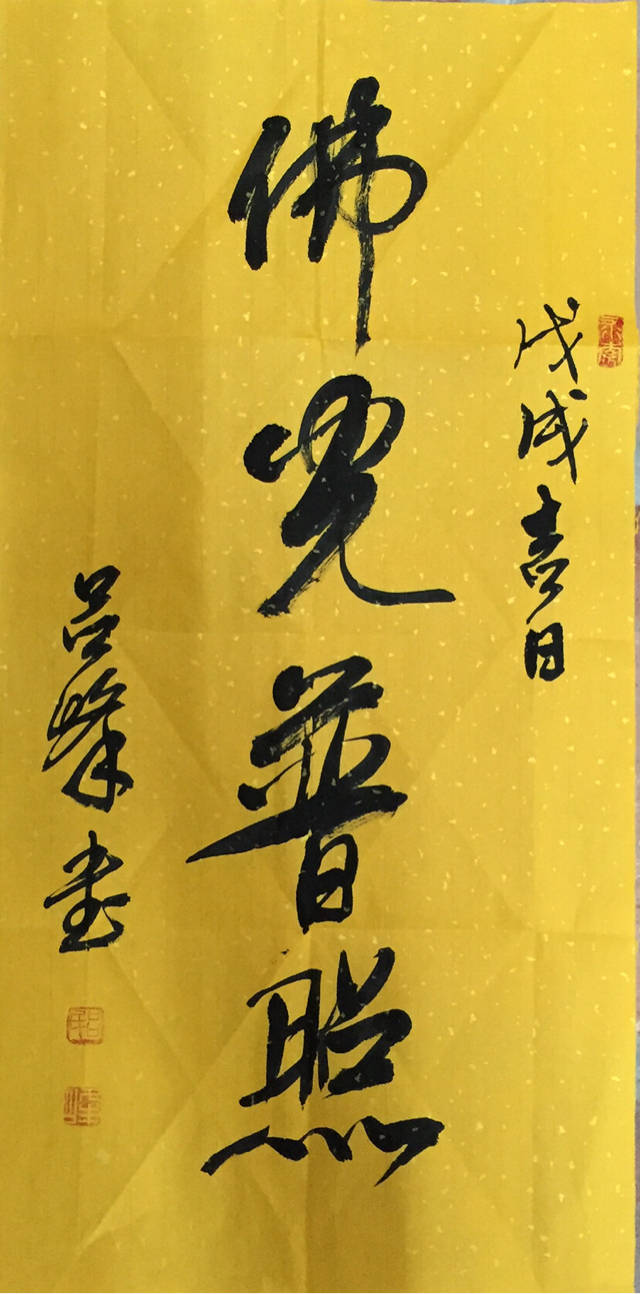 戊戌吉日
佛光普照
吕峰书